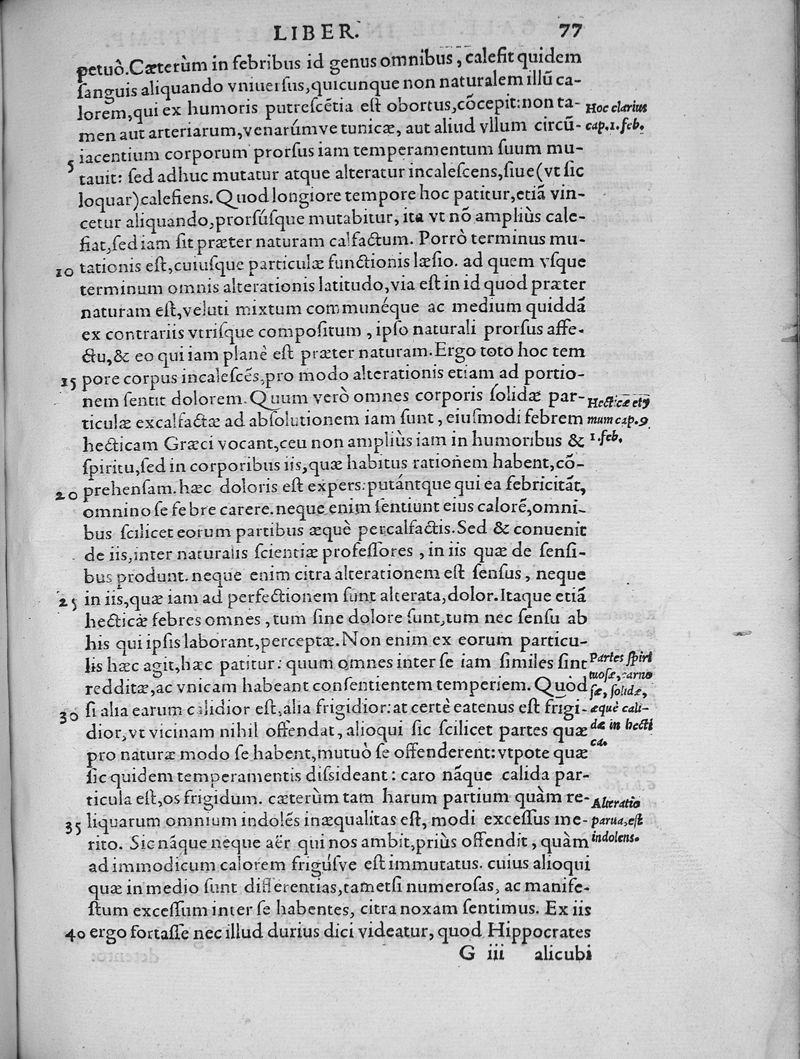 LIBER. 77
petuò. Cæterùm in febribus id genus omnibus, calefit quidem
ſanguis aliquando vniuerſus, quicunque non naturalem illũ ca-
lorem, qui ex humoris putreſcẽtia eſt obortus, cõcepit: non ta- Hoc clarius
men aut arteriarum, venarúmve tunicæ, aut aliud vllum circũ- cap.1.feb.
5 iacentium corporum prorſus iam temperamentum ſuum mu-
tauit: ſed adhuc mutatur atque alteratur incaleſcens, ſiue (vt ſic
loquar) calefiens. Quod longiore tempore hoc patitur, etiã vin-
cetur aliquando, prorſúſque mutabitur, ita vt nõ ampliùs cale-
fiat, ſed iam ſit præter naturam calfactum. Porrò terminus mu-
10 tationis eſt, cuiuſque particulæ functionis læſio. ad quem vſque
terminum omnis alterationis latitudo, via eſt in id quod præter
naturam eſt, veluti mixtum communéque ac medium quiddã
ex contrariis vtriſque compoſitum, ipſo naturali prorſus affe-
ctu, & eo qui iam planè eſt præter naturam. Ergo toto hoc tem
15 pore corpus incaleſcẽs, pro modo alterationis etiam ad portio-
nem ſentit dolorem. Quum verò omnes corporis ſolidæ par- Hecticæ ety
ticulæ excalfactæ ad abſolutionem iam ſunt, eiuſmodi febrem mum cap.9
hecticam Græci vocant, ceu non ampliùs iam in humoribus & 1.feb.
ſpiritu, ſed in corporibus iis, quæ habitus rationem habent, cõ-
20 prehenſam. hæc doloris eſt expers: putántque qui ea febricitãt,
omnino ſe febre carere. neque enim ſentiunt eius calorẽ, omni-
bus ſcilicet eorum partibus æquè percalfactis. Sed & conuenit
de iis, inter naturalis ſcientiæ profeſſores, in iis quæ de ſenſi-
bus produnt. neque enim citra alterationem eſt ſenſus, neque
25 in iis, quæ iam ad perfectionem ſunt alterata, dolor. Itaque etiã
hecticæ febres omnes, tum ſine dolore ſunt, tum nec ſenſu ab
his qui ipſis laborant, perceptæ. Non enim ex eorum particu-
lis hæc agit, hæc patitur: quum omnes inter ſe iam ſimiles ſint Partes ſpiri
redditæ, ac vnicam habeant conſentientem temperiem. Quòd tuoſæ, carno
ſæ, ſolidæ,
30 ſi alia earum calidior eſt, alia frigidior: at certè eatenus eſt frigi- æquè cali-
dior, vt vicinam nihil offendat, alioqui ſic ſcilicet partes quæ dæ in hecti
pro naturæ modo ſe habent, mutuò ſe offenderent: vtpote quæ ca.
ſic quidem temperamentis diſsideant: caro nãque calida par-
ticula eſt, os frigidum. cæterùm tam harum partium quàm re- Alteratio
35 liquarum omnium indolẽs inæqualitas eſt, modi exceſſus me- parua, eſt
rito. Sic nãque neque aër qui nos ambit, priùs offendit, quàm indolens.
ad immodicum calorem frigúſve eſt immutatus. cuius alioqui
quæ in medio ſunt differentias, tametſi numeroſas, ac manife-
ſtum exceſſum inter ſe habentes, citra noxam ſentimus. Ex iis
40 ergo fortaſſe nec illud durius dici videatur, quod Hippocrates
G iii alicubi